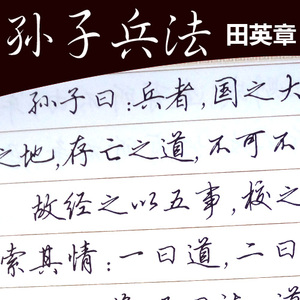 孙子兵法 田英章
孙子曰：兵者，国之大
之地，存亡之道，不可不
故经之以五事，校之
索其情：一曰道，二曰